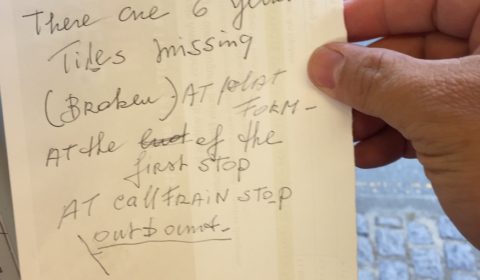 There are 6 yellow
Tiles missing
(Broken) AT plAT
FORM-
AT the of the
first STOP
AT call TRAIN STOP
outbound-